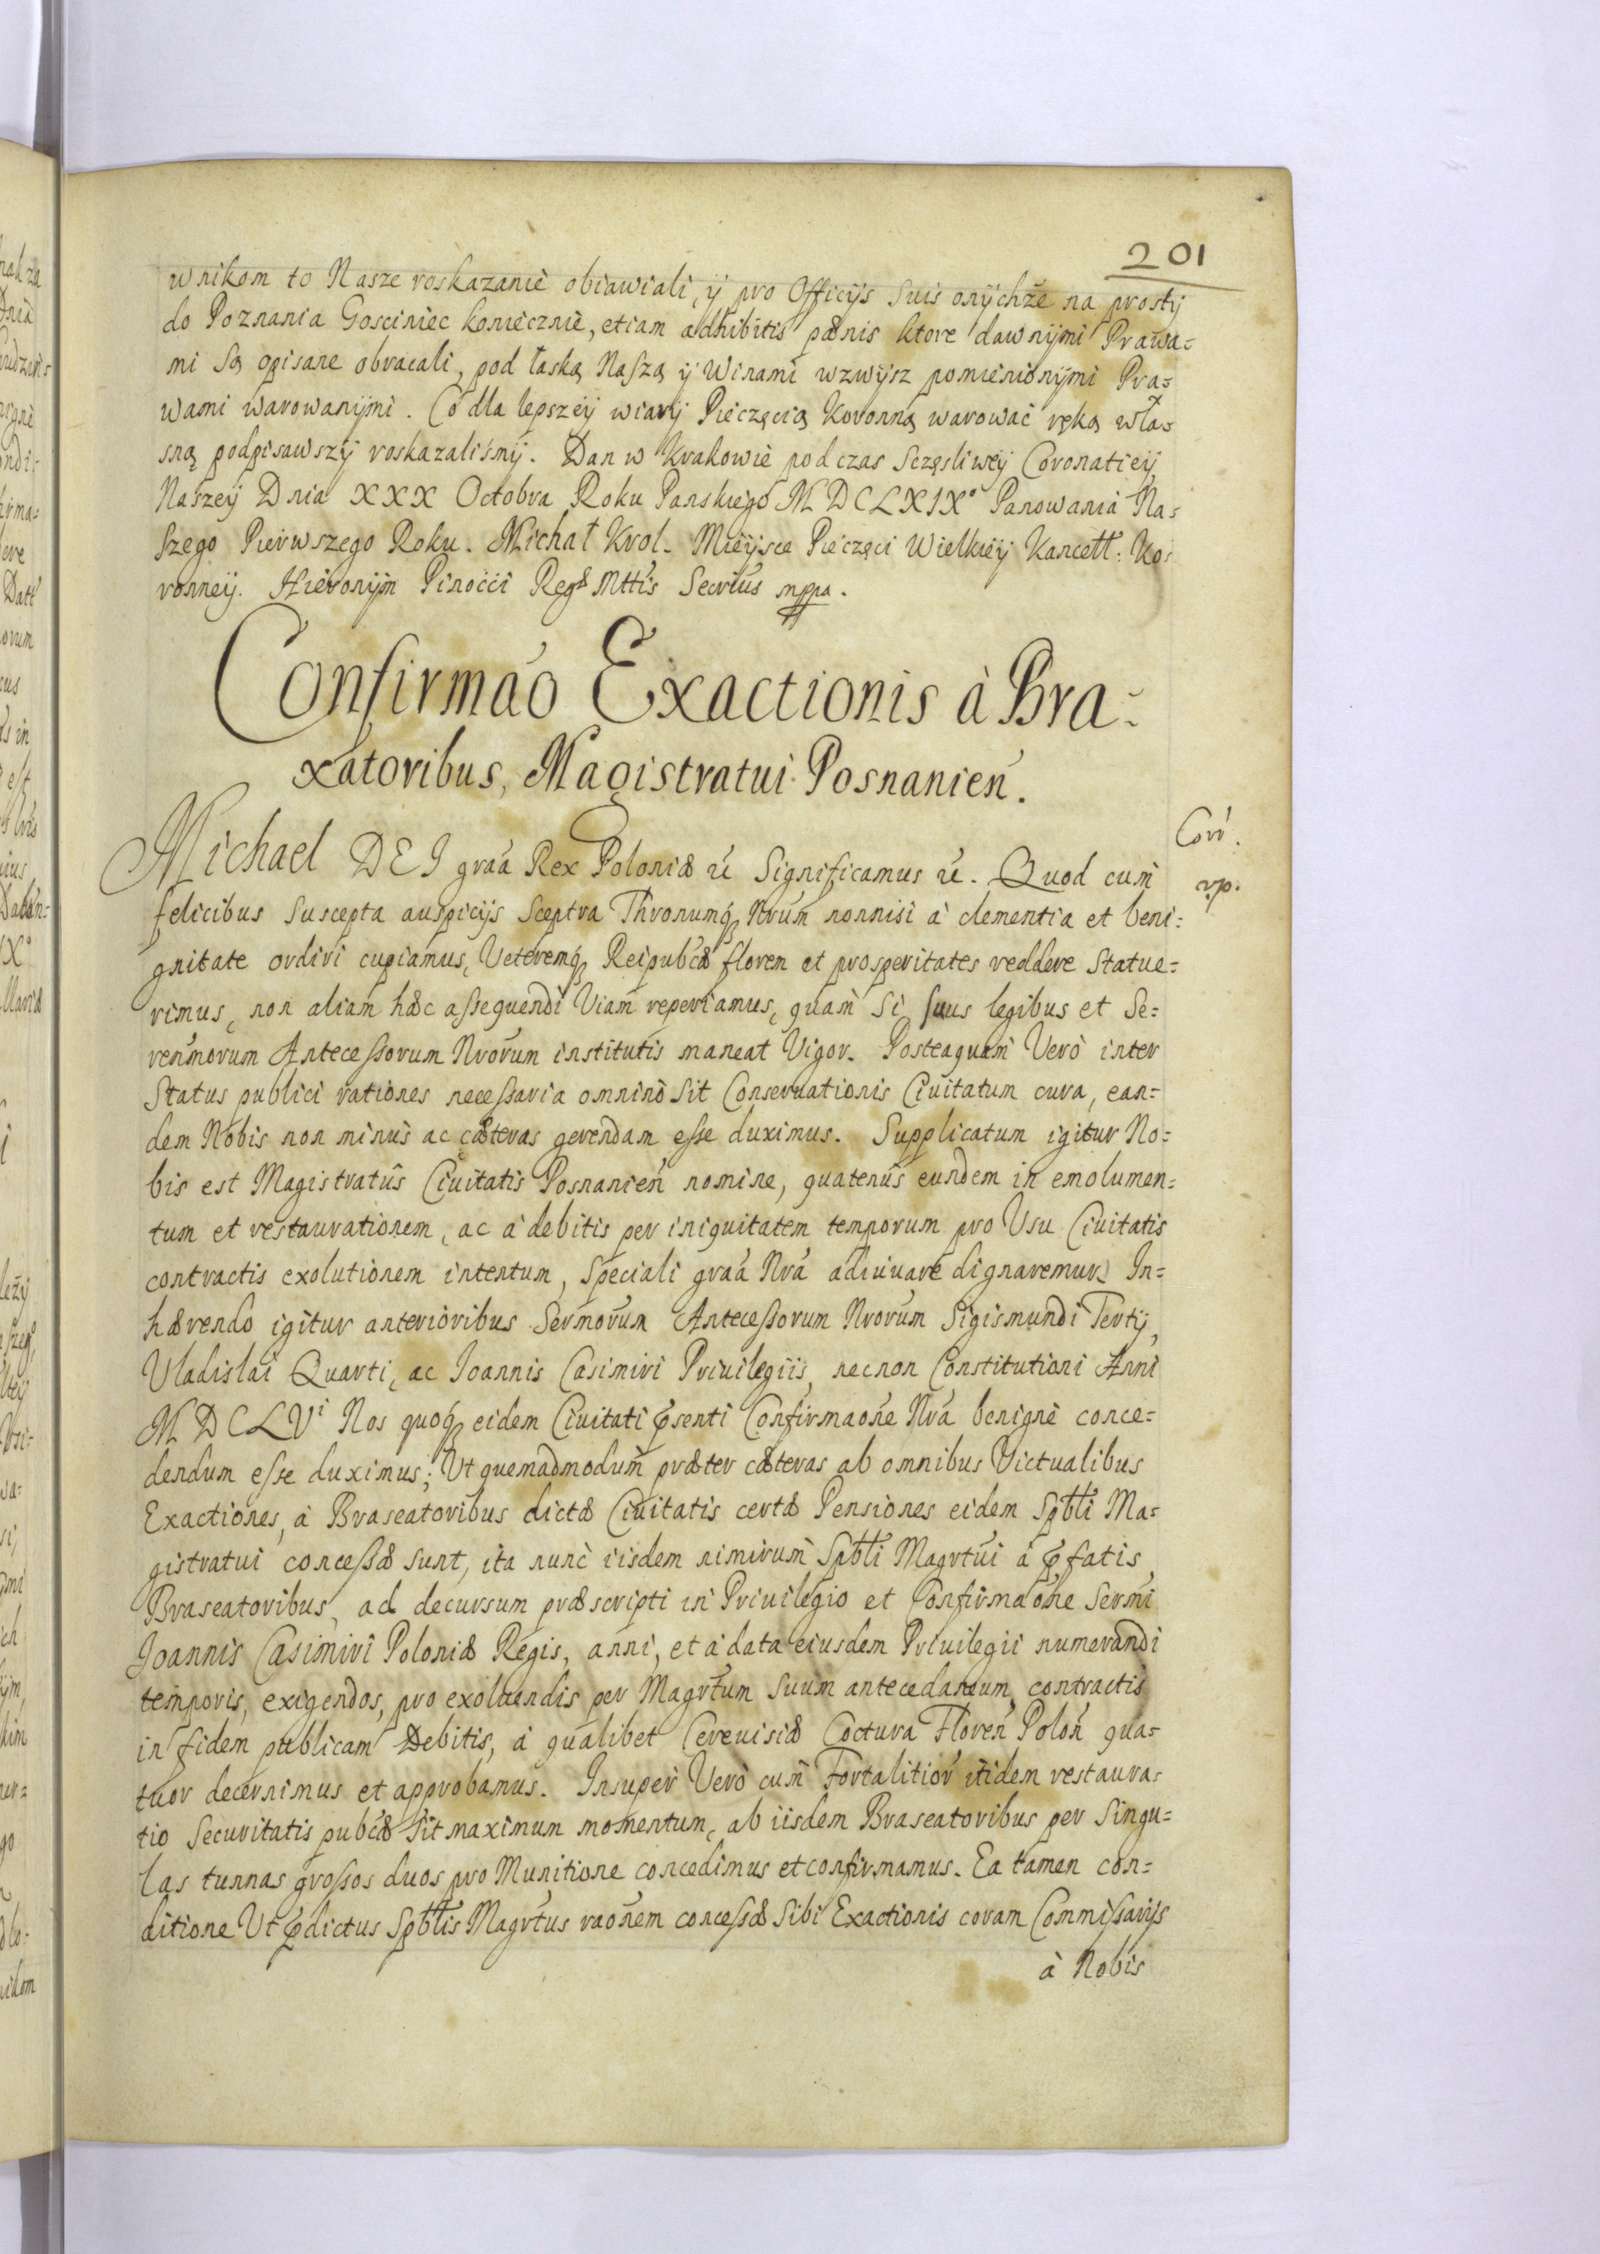 201
wnikom to Nasze roskazanie obiawiali, ÿ pro Officÿs suis onÿchże na prostÿ
do Poznania Gosciniec koniecznie, etiam adhibitis pænis ktore dawnÿmi Prawa=
mi są opisane obracali, pod łaską Naszą ÿ winami wzwÿsz pomienionÿmi Pra=
wami warowanÿmi. Co dla lepszeÿ wiarÿ Pieczęcią Koronną warować ręką wła=
sną podpisawszÿ roskazaliśmÿ. Dan w Krakowie podczas Szczęsliweÿ Coronatieÿ
Naszeÿ Dnia XXX Octobra Roku Panskiego MDCLXIXº Panowania Na=
szego Pierwszego Roku. Michał Krol. Mieÿsce Pieczęci Wielkieÿ Kancell: Ko=
ronneÿ. Hieronÿm Pinocci Regæ Mttis Secrius mppa.
Confirmao Exactionis à Bra=
xatoribus, Magistratui Posnanien.
Corr.
Michael DEI graa Rex Poloniæ &c Significamus &c. Quod cum
felicibus suscepta auspicÿs Sceptra Thronumq Nrum nonnisi à clementia et beni=
gnitate ordiri cupiamus, Veteremq Reipubcæ florem et prosperitates reddere statue=
rimus, non aliam hæc assequendi Viam reperiamus, quam si suus legibus et Se=
renmorum Antecessorum Nrorum institutis maneat Vigor. Posteaquam Verò inter
Status publici rationes necessaria omninò sit Conseruationis Ciuitatum cura, ean=
dem Nobis non minus ac cæteras gerendam esse duximus. Supplicatum igitur No=
bis est Magistratûs Ciuitatis Posnanien nomine, quatenûs eundem in emolumen=
tum et restaurationem, ac à debitis per iniquitatem temporum pro Usu Ciuitatis
contractis exolutionem intentum, speciali graa Nra adiuuare dignaremur. In=
hærendo igitur anterioribus Sermorum Antecessorum Nrorum Sigismundi Tertÿ,
Vladislai Quarti, ac Joannis Casimiri Priuilegiis, necnon Constitutioni Anni
MDCLVi Nos quoq eidem Ciuitati pśenti Confirmaone Nra benignè conce=
dendum esse duximus; Ut quemadmodum præter cæteras ab omnibus Victualibus
Exactiones, à Braseatoribus dictæ Ciuitatis certæ Pensiones eidem Spbli Ma=
gistratui concessæ sunt, ita nunc iisdem nimirum Spbli Magrtui à pfatis
Braseatoribus, ad decursum præscripti in Priuilegio et Confirmaone Sermi
Joannis Casimiri Poloniæ Regis, anni, et à data eiusdem Priuilegii numerandi
temporis, exigendos, pro exoluendis per Magrtum suum antecedaneum, contractis
in fidem publicam Debitis, à qualibet Cereuisiæ Coctura Floren Polon qua=
tuor decernimus et approbamus. Insuper Verò cum Fortalitior itidem restaura=
tio Securitatis pubcæ sit maximum momentum, ab iisdem Braseatoribus per singu=
las tunnas grossos duos pro Munitione concedimus et confirmamus. Ea tamen con=
ditione Ut pdictus Spblis Magrtus raonem concessæ sibi Exactionis coram Commissarÿs
à Nobis